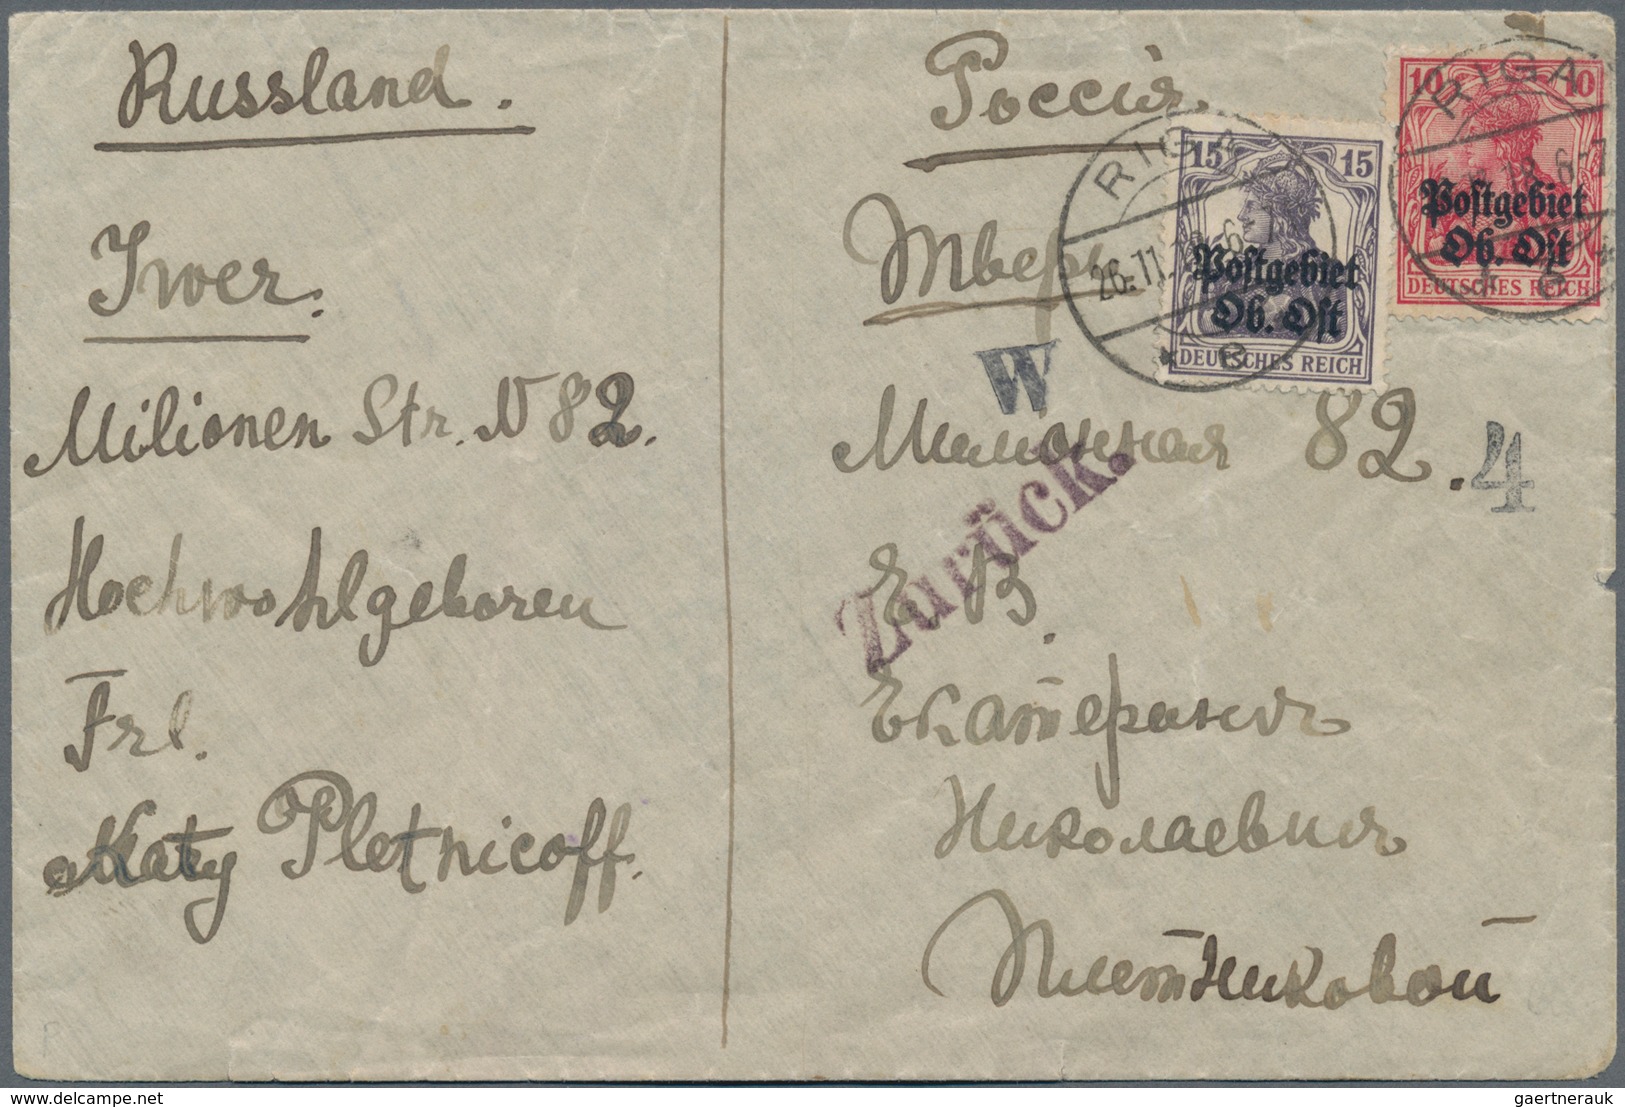 Russland.
Twer.
Milionen Str. N 82.
Hochwohlgeboren
Frl.
Katy Pletnicoff.
Россия
Тверь
Милионная 82.
Е В.
Екатерине
Николаевне
Плетниковой
W
4
Zurück.
RIGA
26.11.18. 6
* e
15 15
Postgebiet
Ob. Ost
DEUTSCHES REICH
RIGA
18. 6-7
10 10
Postgebiet
Ob. Ost
DEUTSCHES REICH
P
gaertnerauk